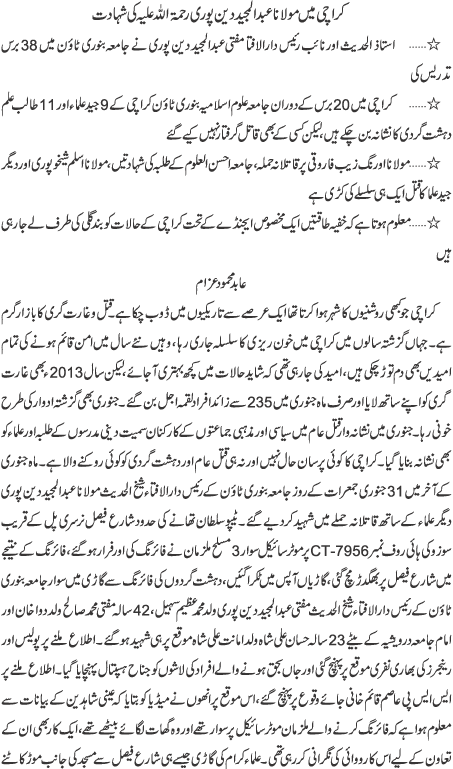 کراچی میں مولانا عبدالمجید دین پوری رحمۃ اللہ علیہ کی شہادت
☆...... استاذ الحدیث اور نائب رئیس دارالافتا مفتی عبدالمجید دین پوری نے جامعہ بنوری ٹاؤن میں 38 برس
تدریس کی
☆...... کراچی میں 20 برس کے دوران جامعہ علوم اسلامیہ بنوری ٹاؤن کراچی کے 9 جید علماء اور 11 طالب علم
دہشت گردی کا نشانہ بن چکے ہیں، لیکن کسی کے بھی قاتل گرفتار نہیں کیے گئے
☆...... مولانا اورنگ زیب فاروقی پر قاتلانہ حملہ، جامعہ احسن العلوم کے طلبہ کی شہادتیں، مولانا اسلم شیخوپوری اور دیگر
جید علما کا قتل ایک ہی سلسلے کی کڑی ہے
☆...... معلوم ہوتا ہے کہ خفیہ طاقتیں ایک مخصوص ایجنڈے کے تحت کراچی کے حالات کو بند گلی کی طرف لے جا رہی
ہیں
عابد محمود عزام
کراچی جو کبھی روشنیوں کا شہر ہوا کرتا تھا ایک عرصے سے تاریکیوں میں ڈوب چکا ہے۔ قتل و غارت گری کا بازار گرم
ہے۔ جہاں گزشتہ سالوں میں کراچی میں خون ریزی کا سلسلہ جاری رہا، وہیں نئے سال میں امن قائم ہونے کی تمام
امیدیں بھی دم توڑ چکی ہیں، امید کی جارہی تھی کہ شاید حالات میں کچھ بہتری آجائے، لیکن سال 2013ء بھی غارت
گری کو اپنے ساتھ لایا اور صرف ماہ جنوری میں 235 سے زائد افراد لقمہ اجل بن گئے۔ جنوری بھی گزشتہ ادوار کی طرح
خونی رہا۔ جنوری میں نشانہ وار قتل عام میں سیاسی اور مذہبی جماعتوں کے کارکنان سمیت دینی مدرسوں کے طلبہ اور علماء کو
بھی نشانہ بنایا گیا۔ کراچی کا کوئی پرسان حال نہیں اور نہ ہی قتل عام اور دہشت گردی کو کوئی روکنے والا ہے۔ ماہ جنوری
کے آخر میں 31 جنوری جمعرات کے روز جامعہ بنوری ٹاؤن کے رئیس دارالافتاء شیخ الحدیث مولانا عبدالمجید دین پوری
دیگر علماء کے ساتھ قاتلانہ حملے میں شہید کر دیے گئے۔ ٹیپو سلطان تھانے کی حدود شارع فیصل نرسری پل کے قریب
سوزوکی ہائی روف نمبر CT-7956 پر موٹر سائیکل سوار 3 مسلح ملزمان نے فائرنگ کی اور فرار ہو گئے، فائرنگ کے نتیجے
میں شارع فیصل پر بھگدڑ مچ گئی، گاڑیاں آپس میں ٹکرا گئیں، دہشت گردوں کی فائرنگ سے گاڑی میں سوار جامعہ بنوری
ٹاؤن کے رئیس دارالافتاء شیخ الحدیث مفتی عبدالمجید دین پوری ولد محمد عظیم سہیل، 42 سالہ مفتی محمد صالح ولد دودا خان اور
امام جامعہ درویشیہ کے بیٹے 23 سالہ حسان علی شاہ ولد امانت علی شاہ موقع پر ہی شہید ہو گئے۔ اطلاع ملنے پر پولیس اور
رینجرز کی بھاری نفری موقع پر پہنچ گئی اور جاں بحق ہونے والے افراد کی لاشوں کو جناح ہسپتال پہنچایا گیا۔ اطلاع ملنے پر
ایس ایس پی عاصم قائم خانی جائے وقوع پر پہنچ گئے، اس موقع پر انھوں نے میڈیا کو بتایا کہ عینی شاہدین کے بیانات سے
معلوم ہوا ہے کہ فائرنگ کرنے والے ملزمان موٹر سائیکل پر سوار تھے اور وہ گھات لگائے بیٹھے تھے، ایک کار بھی ان کے
تعاون کے لیے اس کارروائی کی نگرانی کر رہی تھی۔ علماء کرام کی گاڑی جیسے ہی شارع فیصل سے مسجد کی جانب موڑ کاٹنے